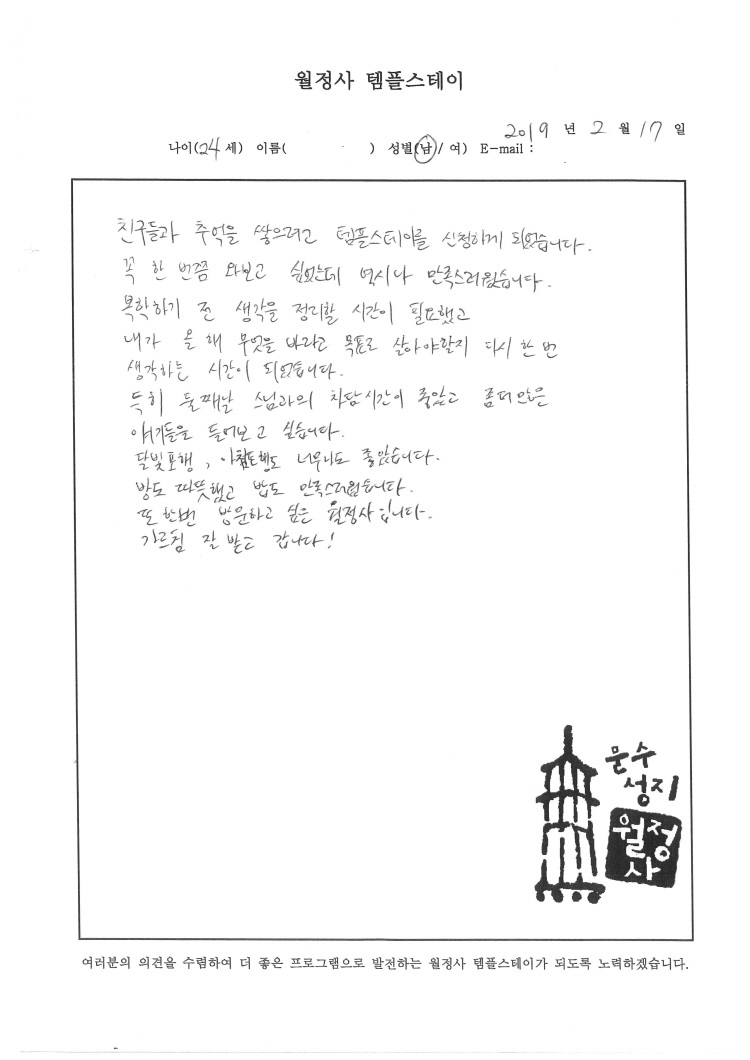 월정사 템플스테이
2019 년 2 월 17 일
나이(24 세) 이름( ) 성별(남/ 여) E-mail :
친구들과 추억을 쌓으려고 템플스테이를 신청하게 되었습니다.
꼭 한 번쯤 와보고 싶었는데 역시나 만족스러웠습니다.
복학하기 전 생각을 정리할 시간이 필요했고
내가 올 해 무엇을 바라고 목표로 살아야할지 다시 한 번
생각하는 시간이 되었습니다.
특히 둘째날 스님과의 차담시간이 좋았고 좀더 많은
이야기들을 들어보고 싶습니다.
달빛포행, 아침포행도 너무나도 좋았습니다.
방도 따뜻했고 밥도 만족스러웠습니다.
또 한번 방문하고 싶은 월정사입니다.
가르침 잘 받고 갑니다!
문수
성지
월정
사
여러분의 의견을 수렴하여 더 좋은 프로그램으로 발전하는 월정사 템플스테이가 되도록 노력하겠습니다.